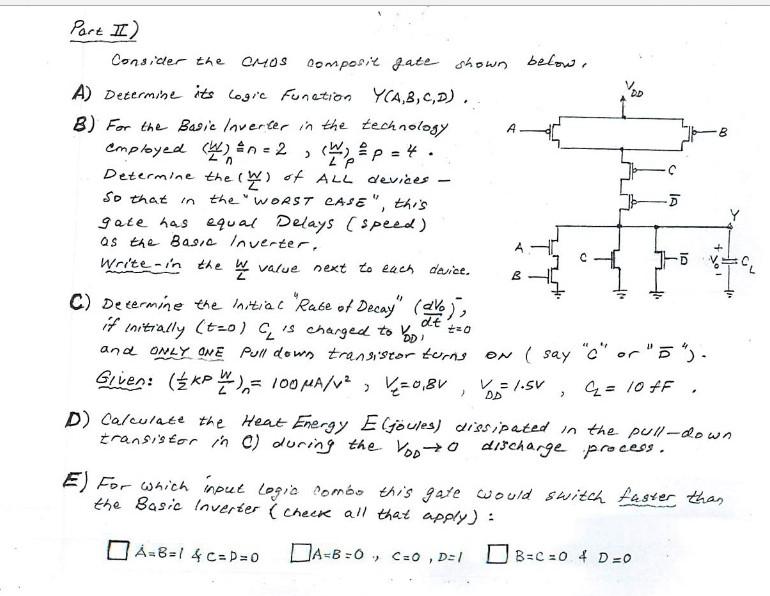 Part II)
Consider the CMOS composit gate shown below.
A) Determine its Logic Function Y(A,B,C,D).
B) For the Basic Inverter in the technology
employed (W/L)n ≜ n = 2 , (W/L)p ≜ p = 4 .
Determine the (W/L) of ALL devices —
So that in the "WORST CASE", this
gate has equal Delays (speed)
as the Basic Inverter.
Write-in the W/L value next to each device.
VDD
A
B
C
D̅
Y
A
B
C
D̅
+
Vo
-
CL
C) Determine the Initial "Rate of Decay" (dVo/dt)t=0,
if initially (t=0) CL is charged to VDD,
and ONLY ONE Pull down transistor turns ON ( say "C" or "D̅ ").
Given: (½ KP W/L)n = 100 µA/V² , Vt = 0,8V , VDD = 1.5V , CL = 10 fF .
D) Calculate the Heat Energy E (joules) dissipated in the pull-down
transistor in C) during the VDD → 0 discharge process.
E) For which input Logic combo this gate would switch faster than
the Basic Inverter ( check all that apply ) :
☐ A=B=1 & C=D=0 ☐ A=B=0 , C=0 , D=1 ☐ B=C=0 & D=0